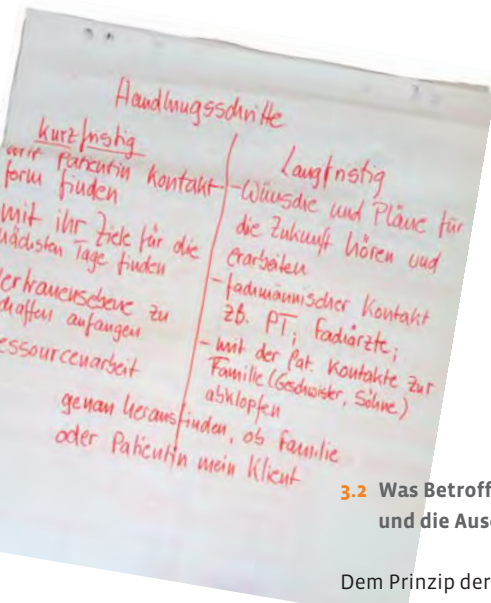 Handlungsschritte
kurzfristig
mit Patientin Kontakt-
form finden
mit ihr Ziele für die
nächsten Tage finden
ertrauensebene zu
chaffen anfangen
essourcenarbeit
Langfristig
- Wünsche und Pläne für
die Zukunft hören und
erarbeiten
- fachmännischer Kontakt
zb. PT, Fachärzte,
- mit der Pat. Kontakte zur
Familie (Geschwister, Söhne)
abklopfen
genau herausfinden, ob Familie
oder Patientin mein Klient
3.2 Was Betroff
und die Aus
Dem Prinzip der